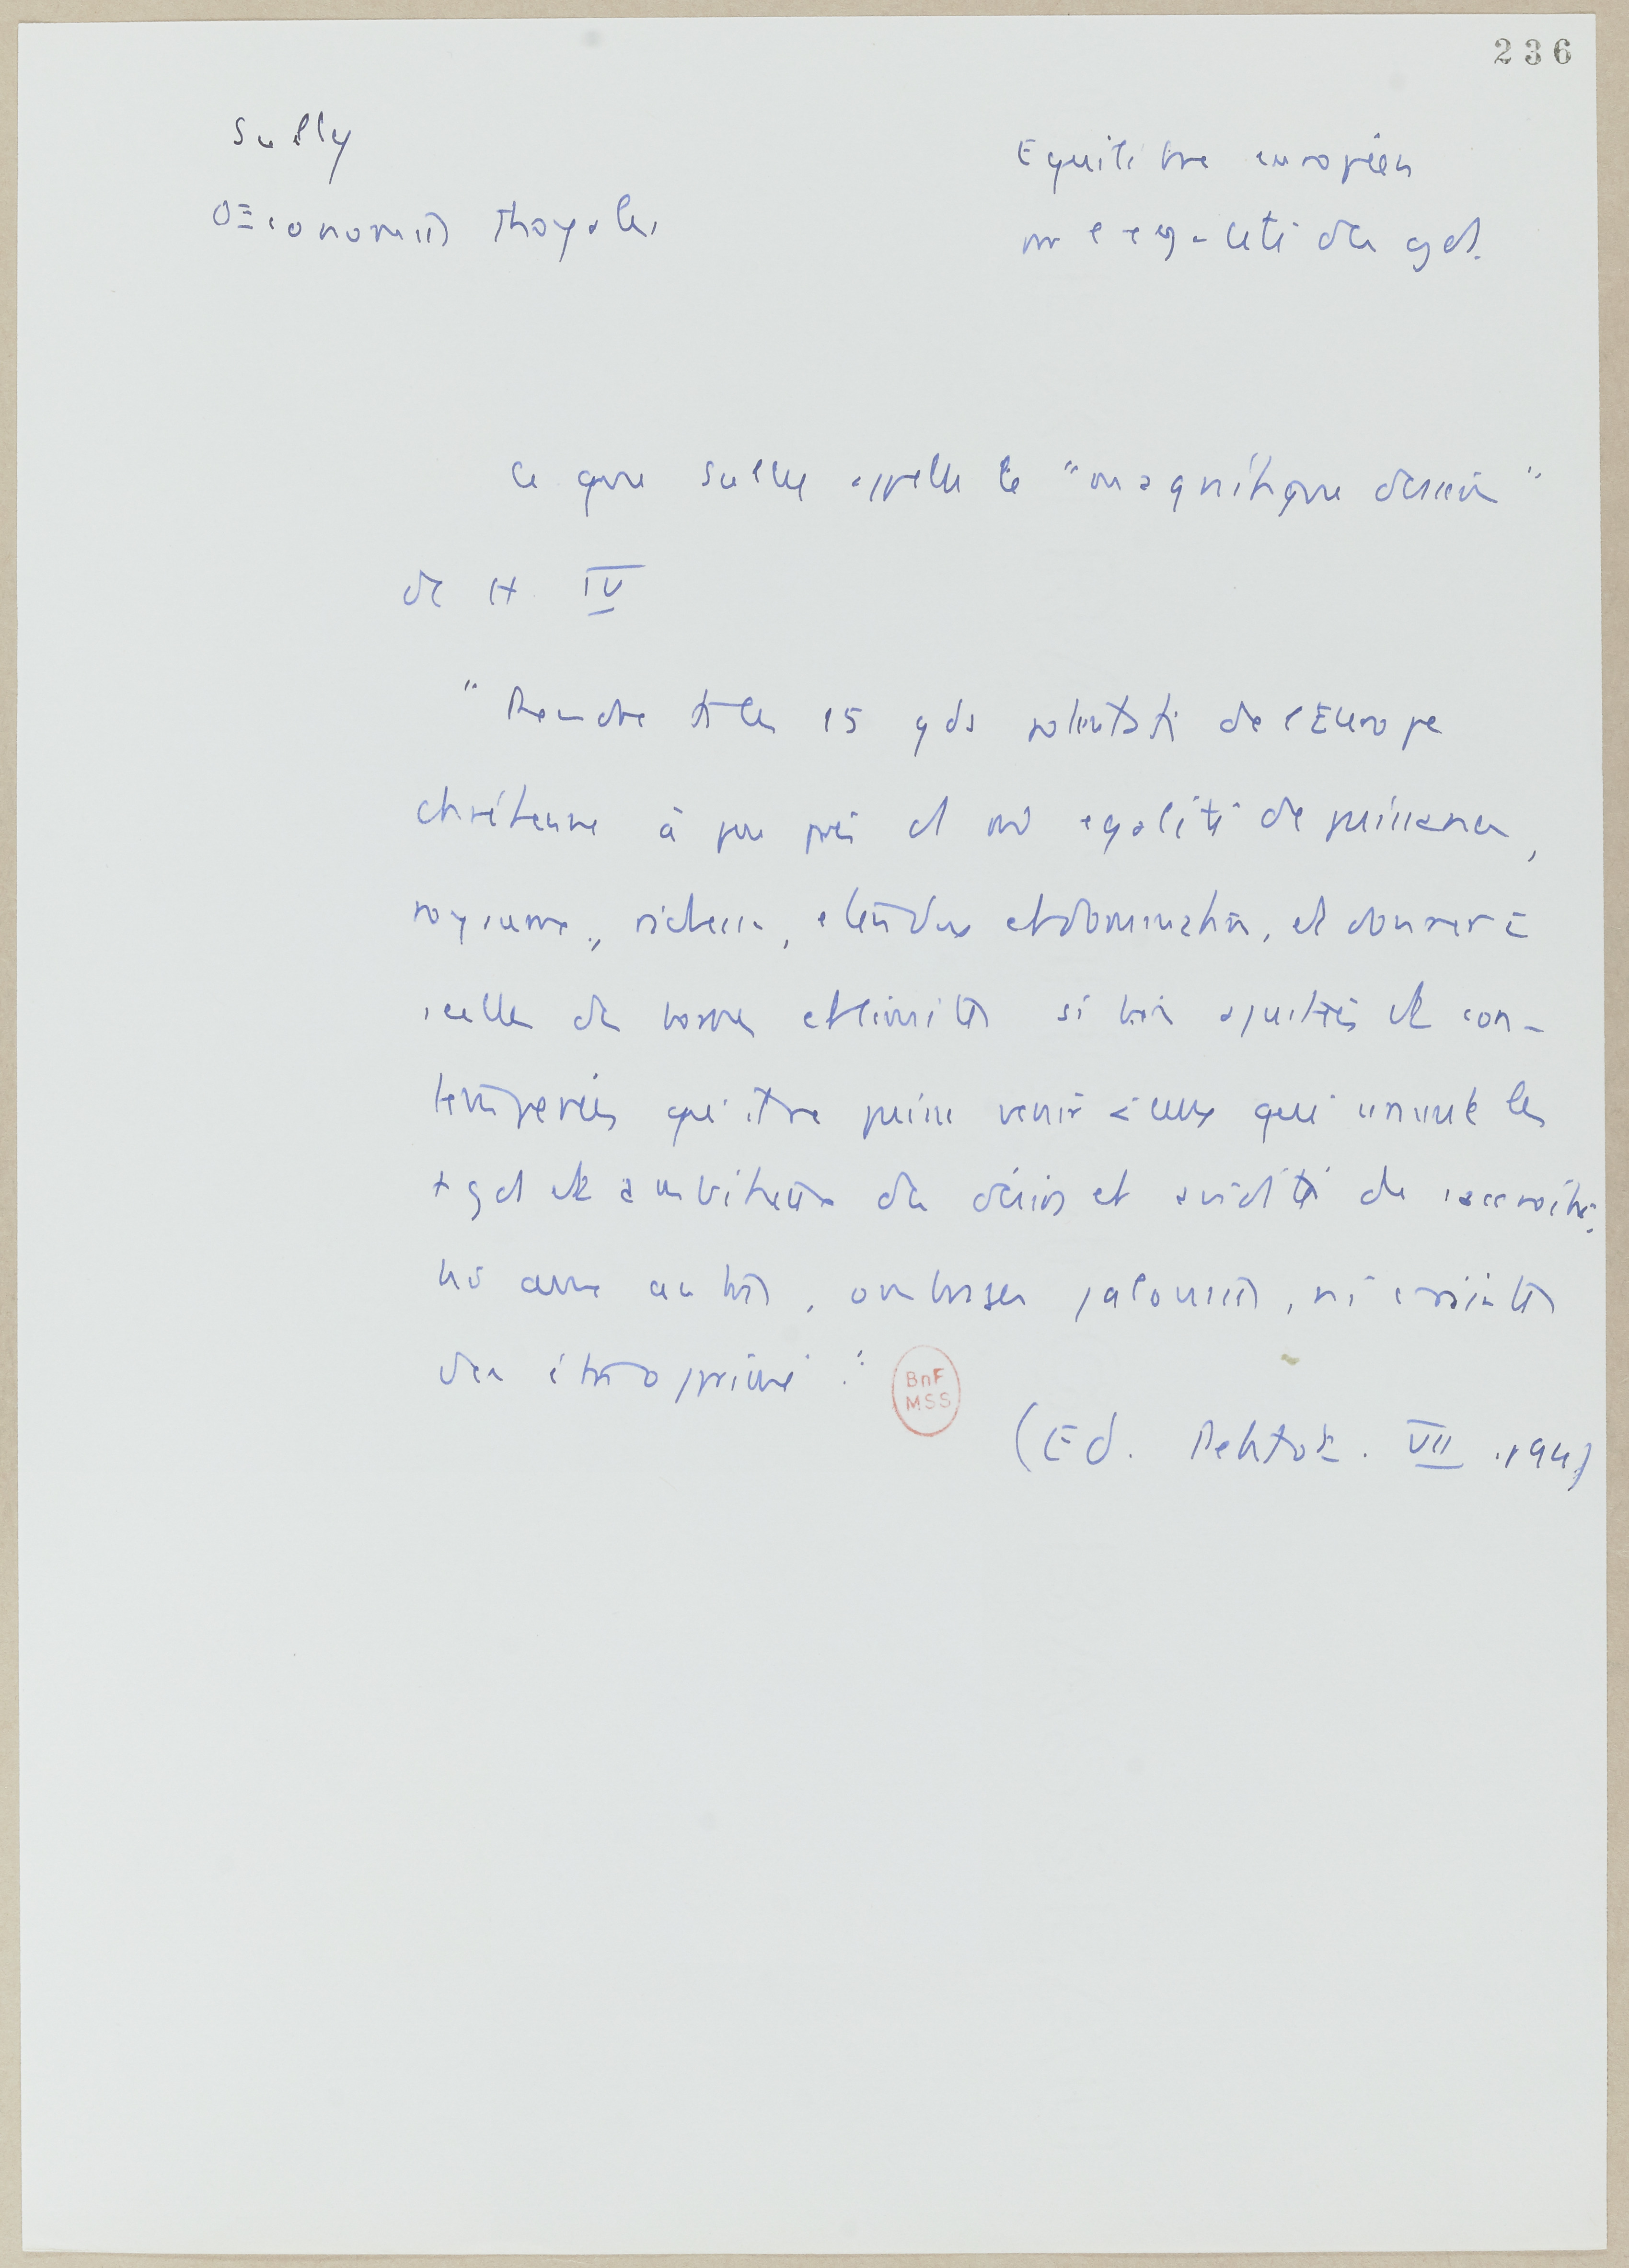 236
Sully
OEconomies Royales
Equilibre européen
sur l'egalité des gds.
Ce que Sully appelle le "magnifique dessein"
de H IV
"Rendre ts les 15 gds potentats de l'Europe
chrétienne à peu près d'une egalité de puissance,
royaume, richesse, etendue et domination, et donner à
icelles des bornes et limites si bien ajustées et con-
tempérées qu'il ne puisse venir à ceux qui seront les
+ gds et ambitieux des désirs et avidités de s'accroître,
ni aux autres, ombrages jalousies, ni craintes
d'en être opprimés."
BnF
MSS
(Ed. Petitot. VII .94)